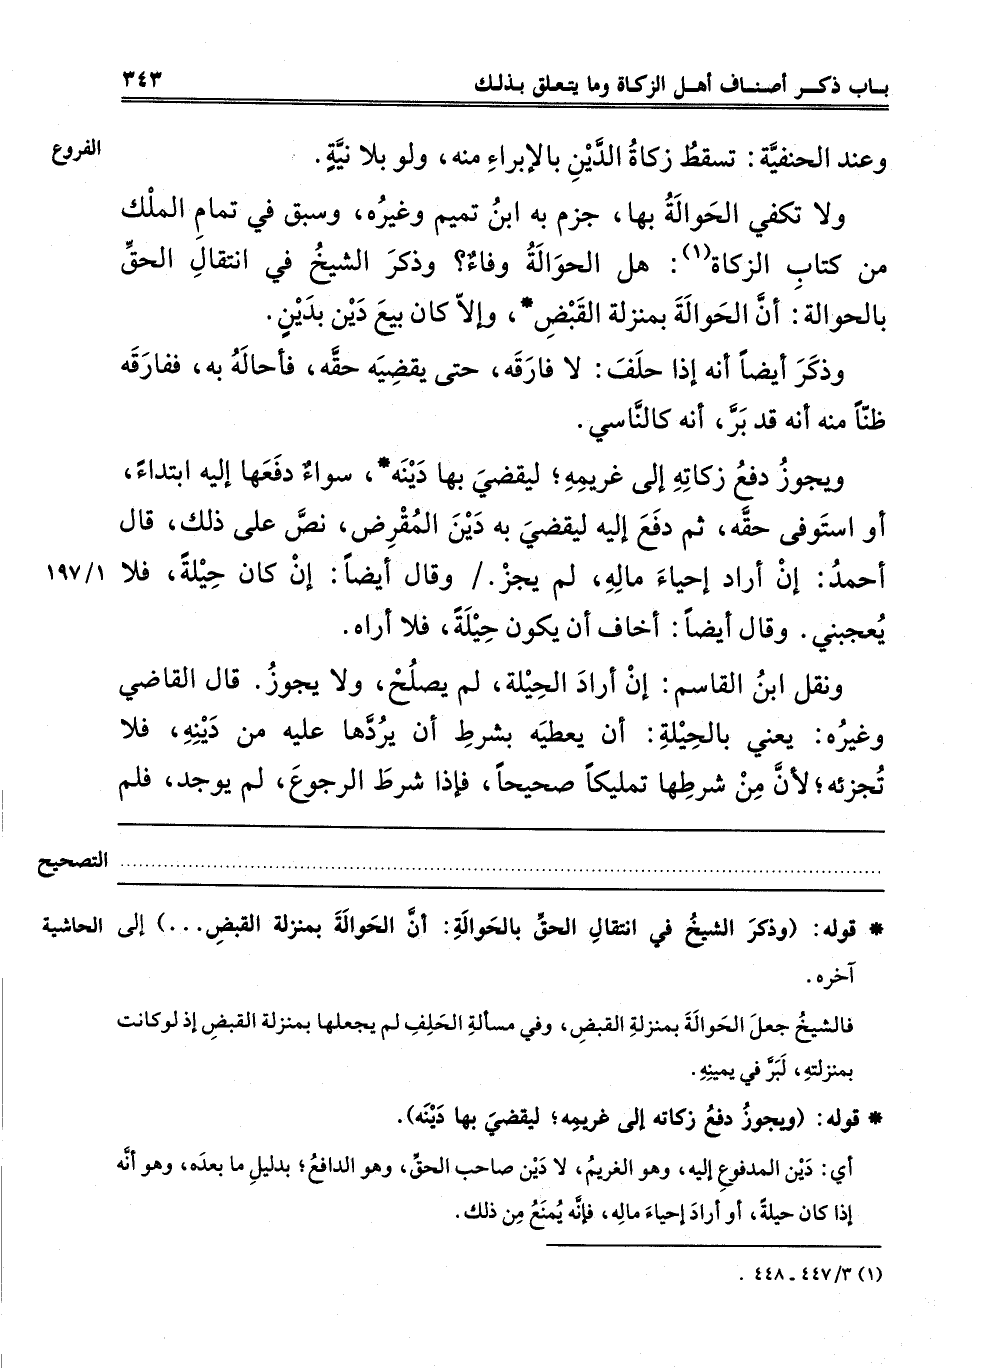 باب ذكر أصناف أهل الزكاة وما يتعلق بذلك ٣٤٣
وعند الحنفيَّة: تسقطُ زكاةُ الدَّيْنِ بالإبراءِ منه، ولو بلا نيَّةٍ. الفروع
ولا تكفي الحَوالَةُ بها، جزم به ابنُ تميم وغيرُه، وسبق في تمامِ الملْك
من كتابِ الزكاة(١): هل الحوَالَةُ وفاءٌ؟ وذكرَ الشيخُ في انتقالِ الحقِّ
بالحوالة: أنَّ الحَوالَةَ بمنزلة القَبْضِ*، وإلاّ كان بيعَ دَيْن بدَيْنٍ.
وذكَرَ أيضاً أنه إذا حلَفَ: لا فارَقَه، حتى يقضِيَه حقَّه، فأحالَهُ به، ففارَقَه
ظنّاً منه أنه قد بَرَّ، أنه كالنَّاسي.
ويجوزُ دفعُ زكاتِهِ إلى غريمِهِ؛ ليقضيَ بها دَيْنَه*، سواءٌ دفَعَها إليه ابتداءً،
أو استَوفى حقَّه، ثم دفَعَ إليه ليقضيَ به دَيْنَ المُقْرِض، نصَّ على ذلك، قال
أحمدُ: إنْ أراد إحياءَ مالِهِ، لم يجزْ./ وقال أيضاً: إنْ كان حِيْلةً، فلا ١/١٩٧
يُعجبني. وقال أيضاً: أخاف أن يكون حِيْلَةً، فلا أراه.
ونقل ابنُ القاسم: إنْ أرادَ الحِيْلة، لم يصلُحْ، ولا يجوزُ. قال القاضي
وغيرُه: يعني بالحِيْلةِ: أن يعطيَه بشرطِ أن يرُدَّها عليه من دَيْنِهِ، فلا
تُجزئه؛ لأنَّ مِنْ شرطِها تمليكاً صحيحاً، فإذا شرطَ الرجوعَ، لم يوجد، فلم
التصحيح
* قوله: (وذكرَ الشيخُ في انتقالِ الحقِّ بالحَوالَةِ: أنَّ الحَوالَةَ بمنزلة القبضِ...) إلى الحاشية
آخره.
فالشيخُ جعلَ الحَوالَةَ بمنزلةِ القبضِ، وفي مسألةِ الحَلِفِ لم يجعلها بمنزلة القبضِ إذ لو كانت
بمنزلتهِ، لَبَرَّ في يمينِهِ.
* قوله: (ويجوزُ دفعُ زكاته إلى غريمِه؛ ليقضيَ بها دَيْنَه).
أي: دَيْن المدفوعِ إليه، وهو الغريمُ، لا دَيْن صاحب الحقِّ، وهو الدافعُ؛ بدليلِ ما بعدَه، وهو أنَّه
إذا كان حيلةً، أو أرادَ إحياءَ مالِه، فإنَّه يُمنَعُ مِن ذلك.
(١) ٣/ ٤٤٧ ـ ٤٤٨ .